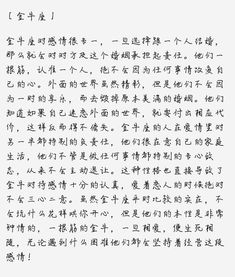 [金牛座]
金牛座对感情很专一,一旦选择跟一个人结婚,
那么就会对对方及这个婚姻承担起责任。他们一
根筋,认准一个人,绝不会因为任何事情改变自
己的心。外面的世界虽然精彩,但是他们不会因
为一时的享乐,而去毁掉原本美满的婚姻。他们
知道如果自己迷恋外面的世界,就要付出相应代
价,这样反而得不偿失。金牛座的人在爱情里对
另一半都特别的负责任,他们很在意自己的家庭
生活,他们不管是做任何事情都特别的专心致
志,从来不会主动退让。这种性格也直接导致了
金牛对待感情十分的认真,爱着恋人的时候绝对
不会三心二意。虽然金牛座平时比较的实在,不
会玩什么花样哄你开心,但是他们的本性是非常
钟情的,一根筋的金牛,一旦相爱,便生死相
随,无论遇到什么困难他们都会坚持着经营这段
感情!